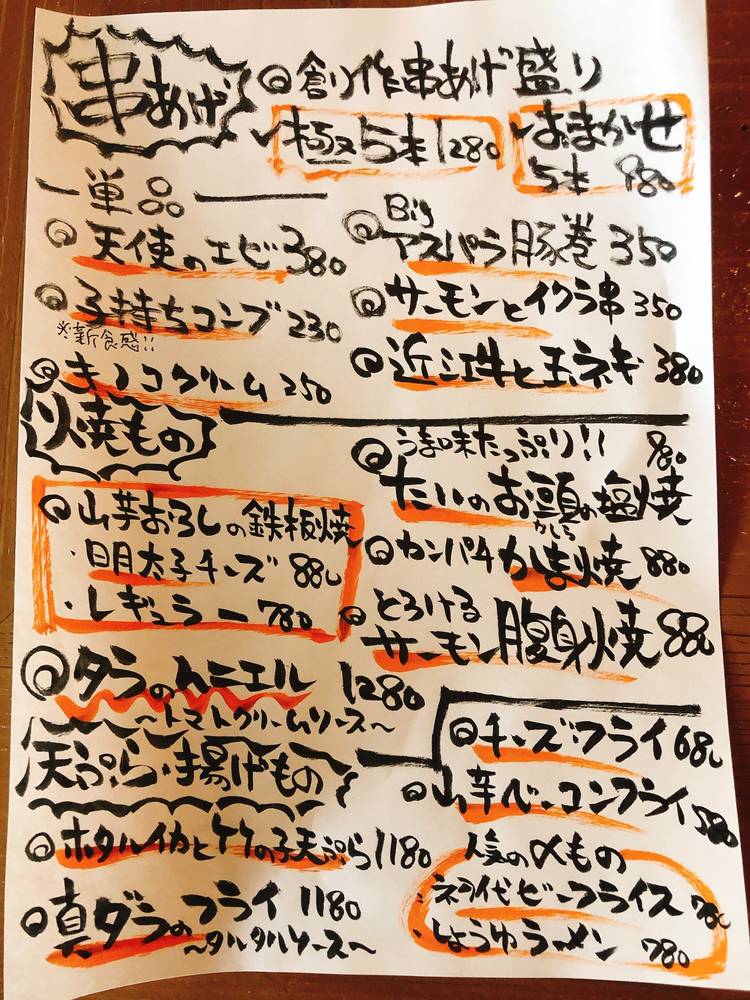 串あげ
◎創り作串あげ盛り
極5本1280
おまかせ
5本 980
一単品
◎天使のエビ380
◎子持ちコンブ230
※新食感!!
◎キノコクリーム250
Big
◎アスパラ豚巻350
◎サーモンとイクラ串350
◎近江牛と玉ネギ380
焼もの
◎山芋おろしの鉄板焼
・明太子チーズ 880
・レギュラー780
◎タラのムニエル 1280
〜トマトクリームソース〜
◎うま味たっぷり!! 780
たいのお頭の塩焼
かしら
◎カンパチかま焼880
◎とろける
サーモン腹身焼880
天ぷら・揚げもの
◎ホタルイカとタケの子天ぷら1180
◎真ダラのフライ1180
〜タルタルソース〜
◎チーズフライ680
◎山芋ベーコンフライ580
人気の〆もの
・ビーフライス780
・しょうゆラーメン780